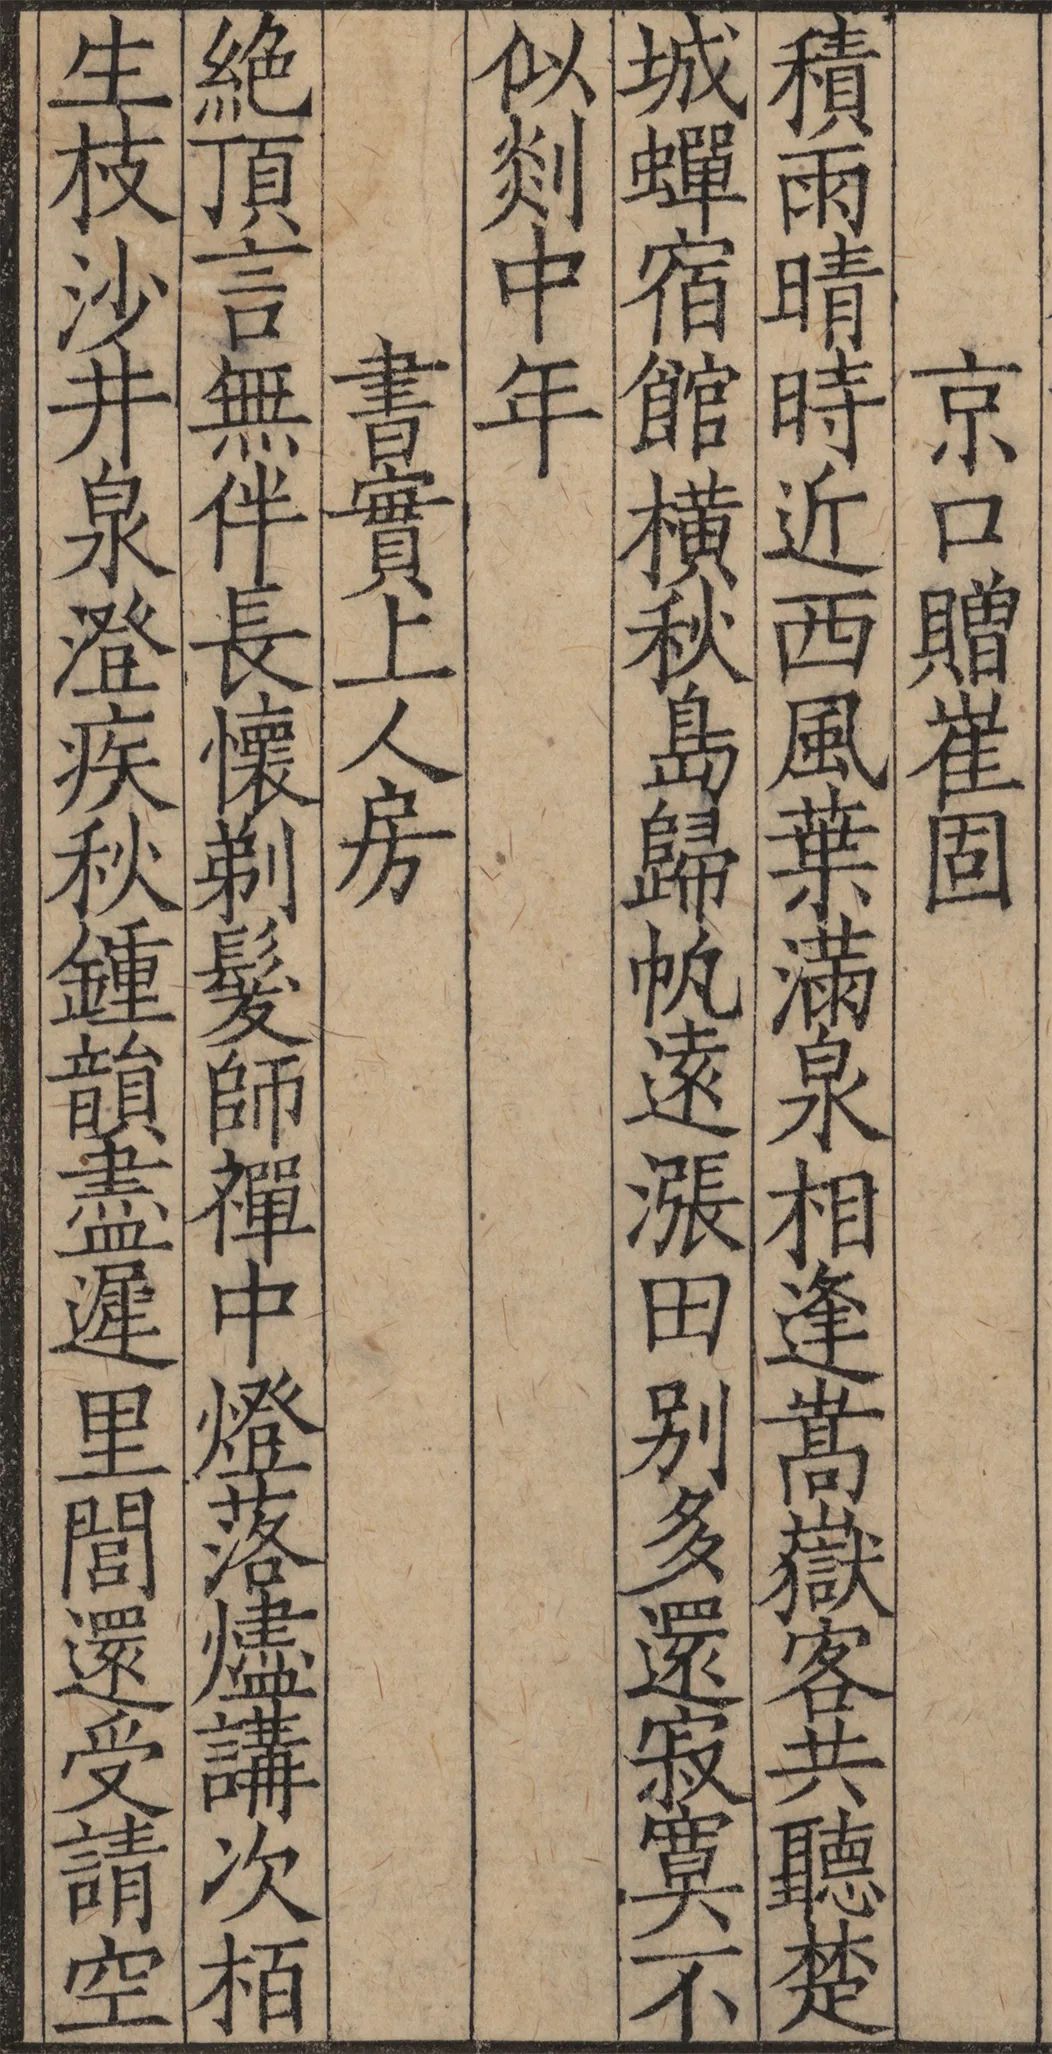 京口贈崔固
積雨晴時近西風葉滿泉相逢嵩嶽客共聽楚
城蟬宿館橫秋島歸帆遠漲田别多還寂寞不
似剡中年
書實上人房
絶頂言無伴長懷剃髮師禪中燈落燼講次栢
生枝沙井泉澄疾秋鍾韻盡遲里閭還受請空